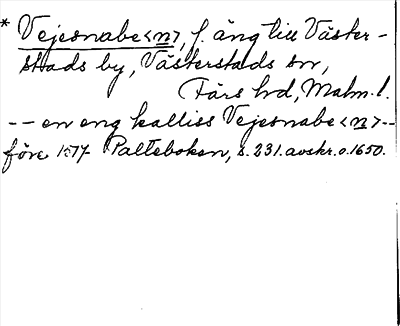 * Vejesnabe<n>, f. äng till Väster-
stads by, Västerstads sn,
Färs hd, Malm. l.
-- en eng kalliss Vejesnabe<n>--
före 1577 Palteboken, s. 231. avskr. o. 1650.